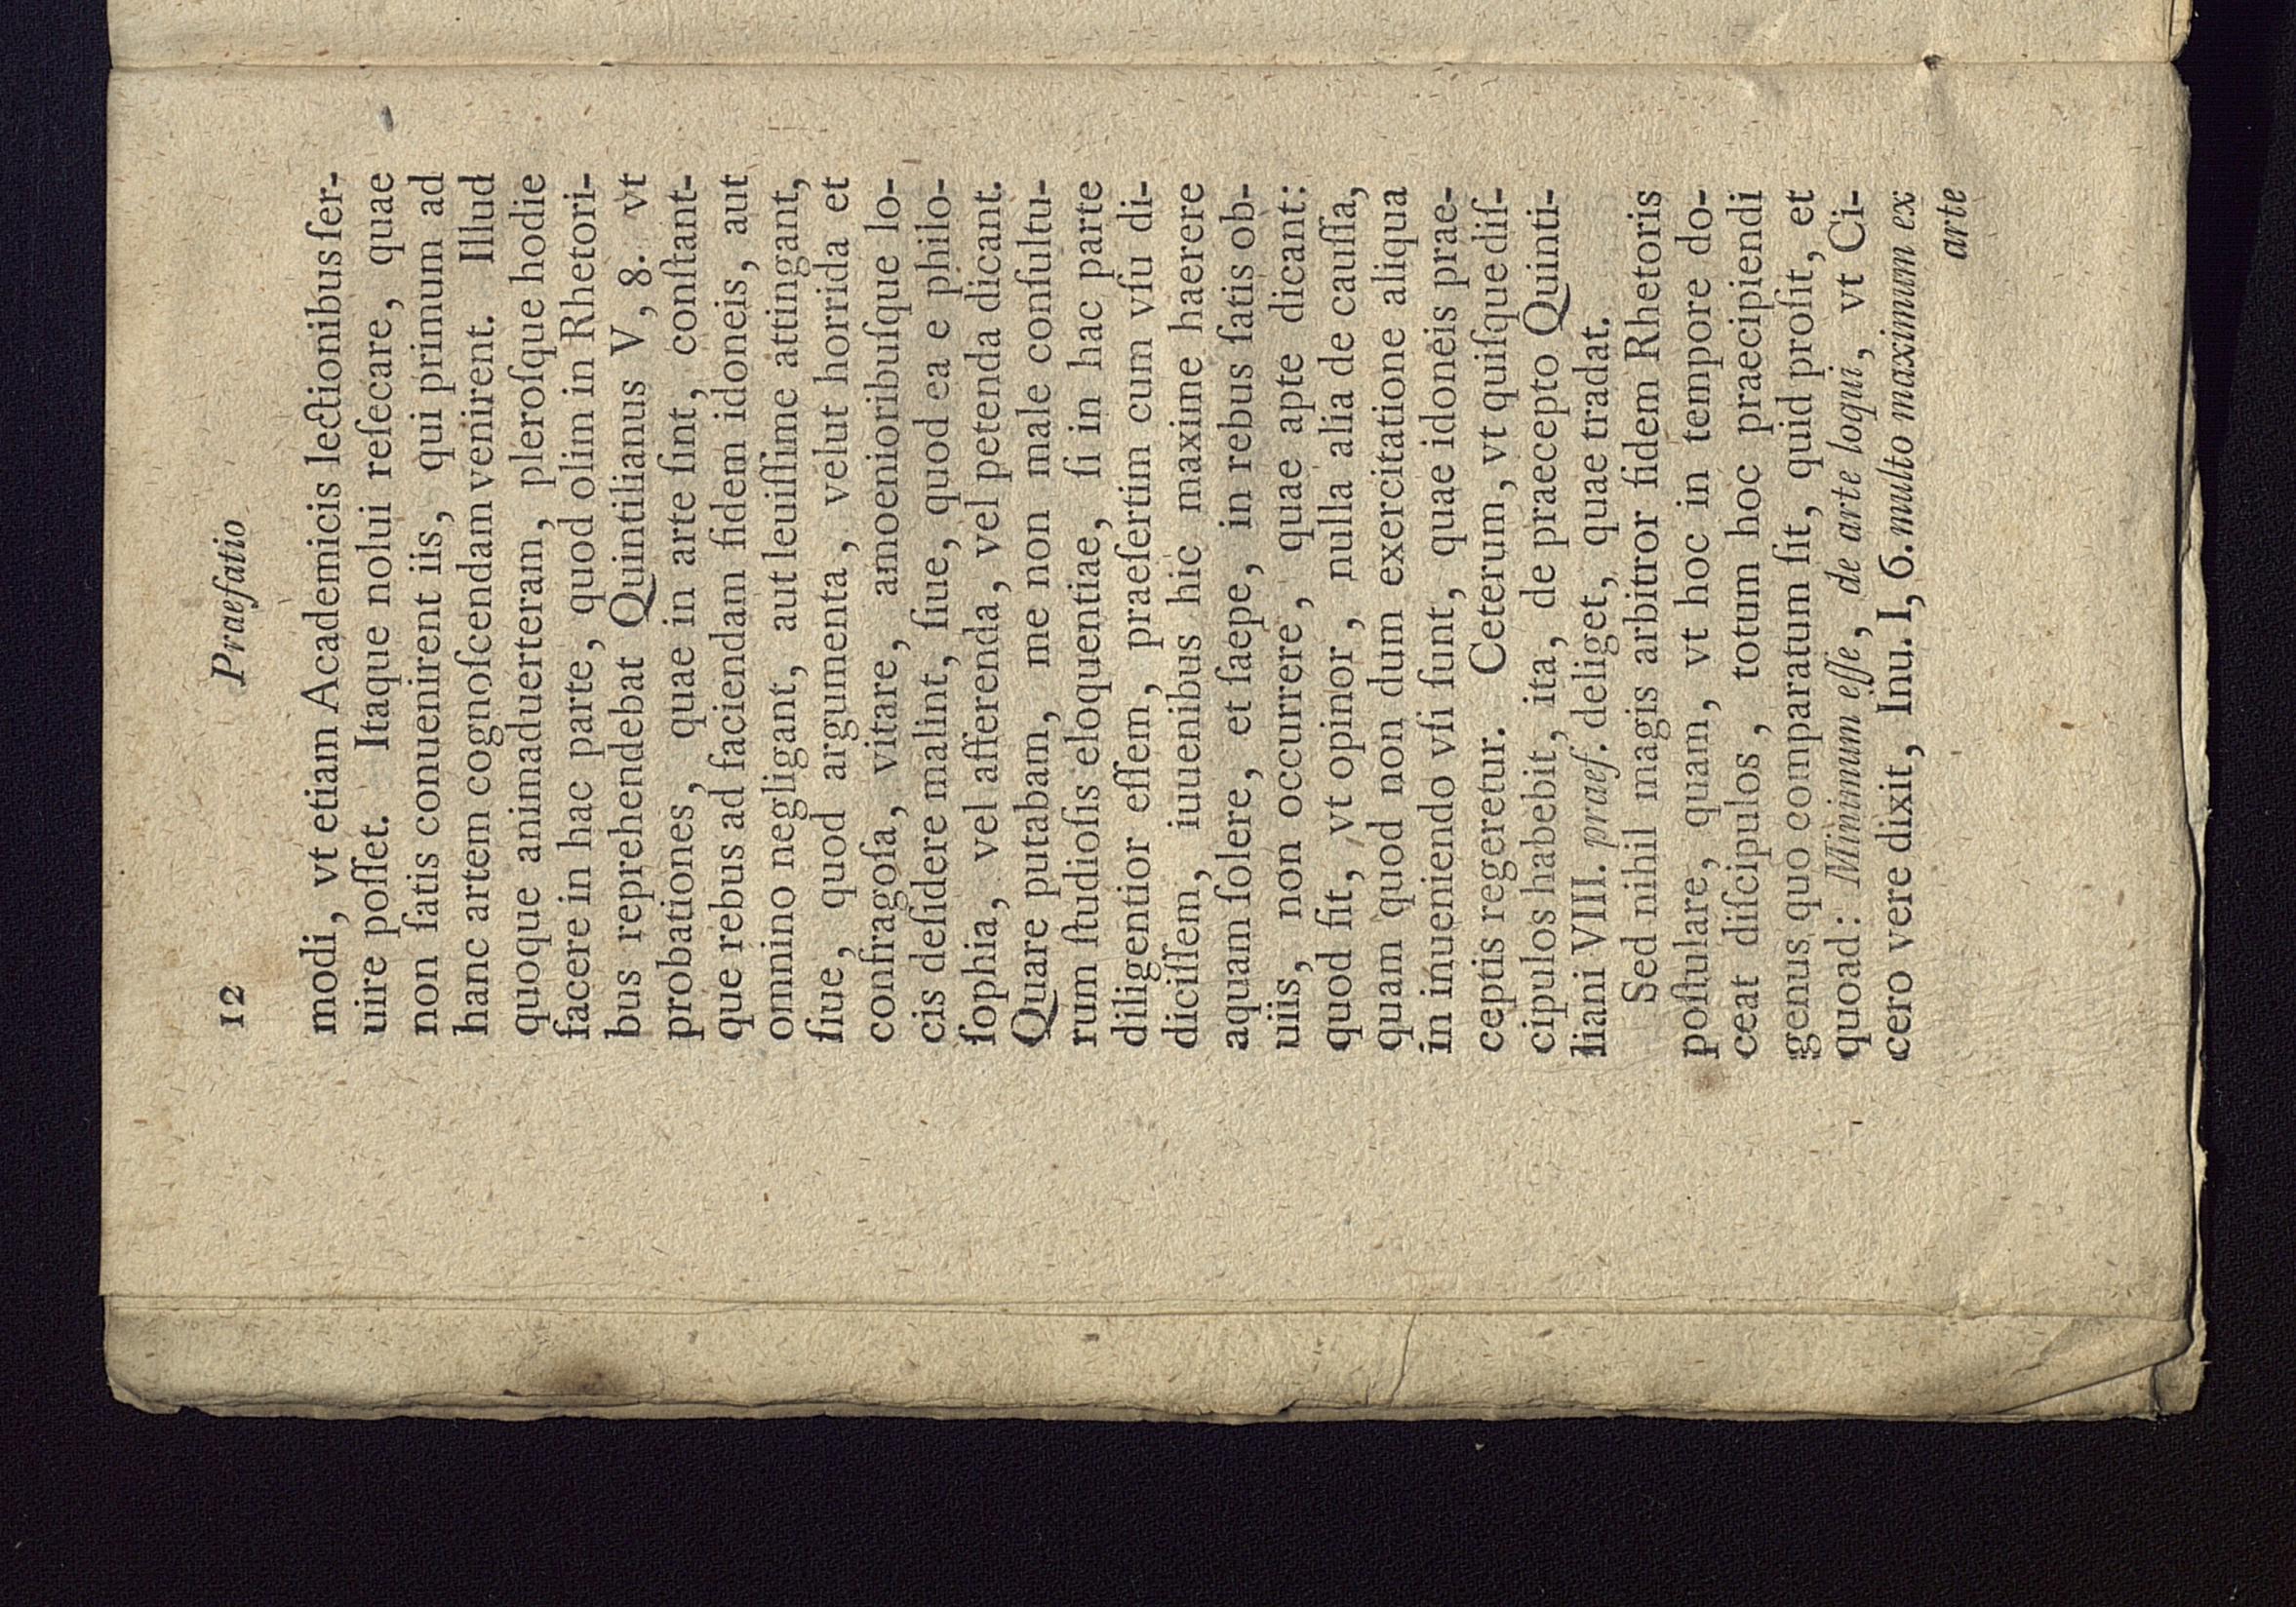 12 Praefatio
modi, vt etiam Academicis lectionibus ſer-
uire poſſet. Itaque nolui reſecare, quae
non ſatis conuenirent iis, qui primum ad
hanc artem cognoſcendam venirent. Illud
quoque animaduerteram, pleroſque hodie
facere in hac parte, quod olim in Rhetori-
bus reprehendebat Quintilianus V, 8. vt
probationes, quae in arte ſint, conſtant-
que rebus ad faciendam fidem idoneis, aut
omnino negligant, aut leuiſſime attingant,
ſiue, quod argumenta, velut horrida et
confragoſa, vitare, amoenioribuſque lo-
cis deſidere malint, ſiue, quod ea e philo-
ſophia, vel afferenda, vel petenda dicant.
Quare putabam, me non male conſultu-
rum ſtudioſis eloquentiae, ſi in hac parte
diligentior eſſem, praeſertim cum vſu di-
diciſſem, iuuenibus hic maxime haerere
aquam ſolere, et ſaepe, in rebus ſatis ob-
uiis, non occurrere, quae apte dicant:
quod fit, vt opinor, nulla alia de cauſſa,
quam quod non dum exercitatione aliqua
in inueniendo vſi ſunt, quae idoneis prae-
ceptis regeretur. Ceterum, vt quiſque diſ-
cipulos habebit, ita, de praecepto Quinti-
liani VIII. praef. deliget, quae tradat.
Sed nihil magis arbitror fidem Rhetoris
poſtulare, quam, vt hoc in tempore do-
ceat diſcipulos, totum hoc praecipiendi
genus quo comparatum ſit, quid proſit, et
quoad: Minimum eſſe, de arte loqui, vt Ci-
cero vere dixit, Inu. I, 6. multo maximum ex
arte